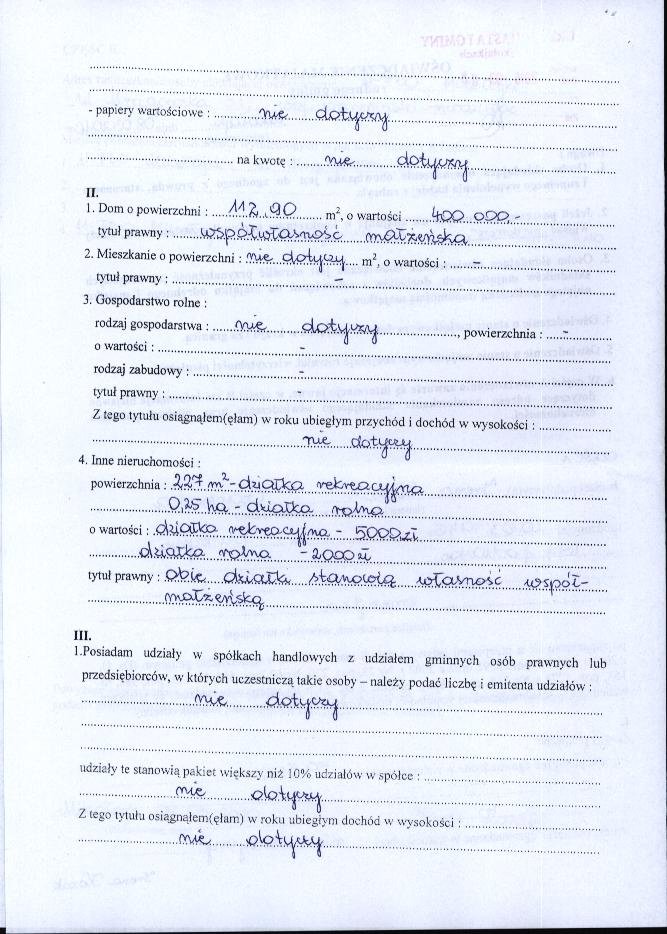 - papiery wartościowe : nie dotyczy
na kwotę : nie dotyczy
II.
1. Dom o powierzchni : 112,90 m², o wartości 400 000,-
tytuł prawny : współwłasność małżeńska
2. Mieszkanie o powierzchni : nie dotyczy m², o wartości : -
tytuł prawny : -
3. Gospodarstwo rolne :
rodzaj gospodarstwa : nie dotyczy, powierzchnia : -
o wartości : -
rodzaj zabudowy : -
tytuł prawny : -
Z tego tytułu osiągnąłem(ęłam) w roku ubiegłym przychód i dochód w wysokości :
nie dotyczy
4. Inne nieruchomości :
powierzchnia : 227 m² - działka rekreacyjna
0,25 ha - działka rolna
o wartości : działka rekreacyjna - 5000 zł
działka rolna - 2000 zł
tytuł prawny : Obie działki stanowią własność współ-
małżeńską
III.
1.Posiadam udziały w spółkach handlowych z udziałem gminnych osób prawnych lub
przedsiębiorców, w których uczestniczą takie osoby – należy podać liczbę i emitenta udziałów :
nie dotyczy
udziały te stanowią pakiet większy niż 10% udziałów w spółce :
nie dotyczy
Z tego tytułu osiągnąłem(ęłam) w roku ubiegłym dochód w wysokości :
nie dotyczy